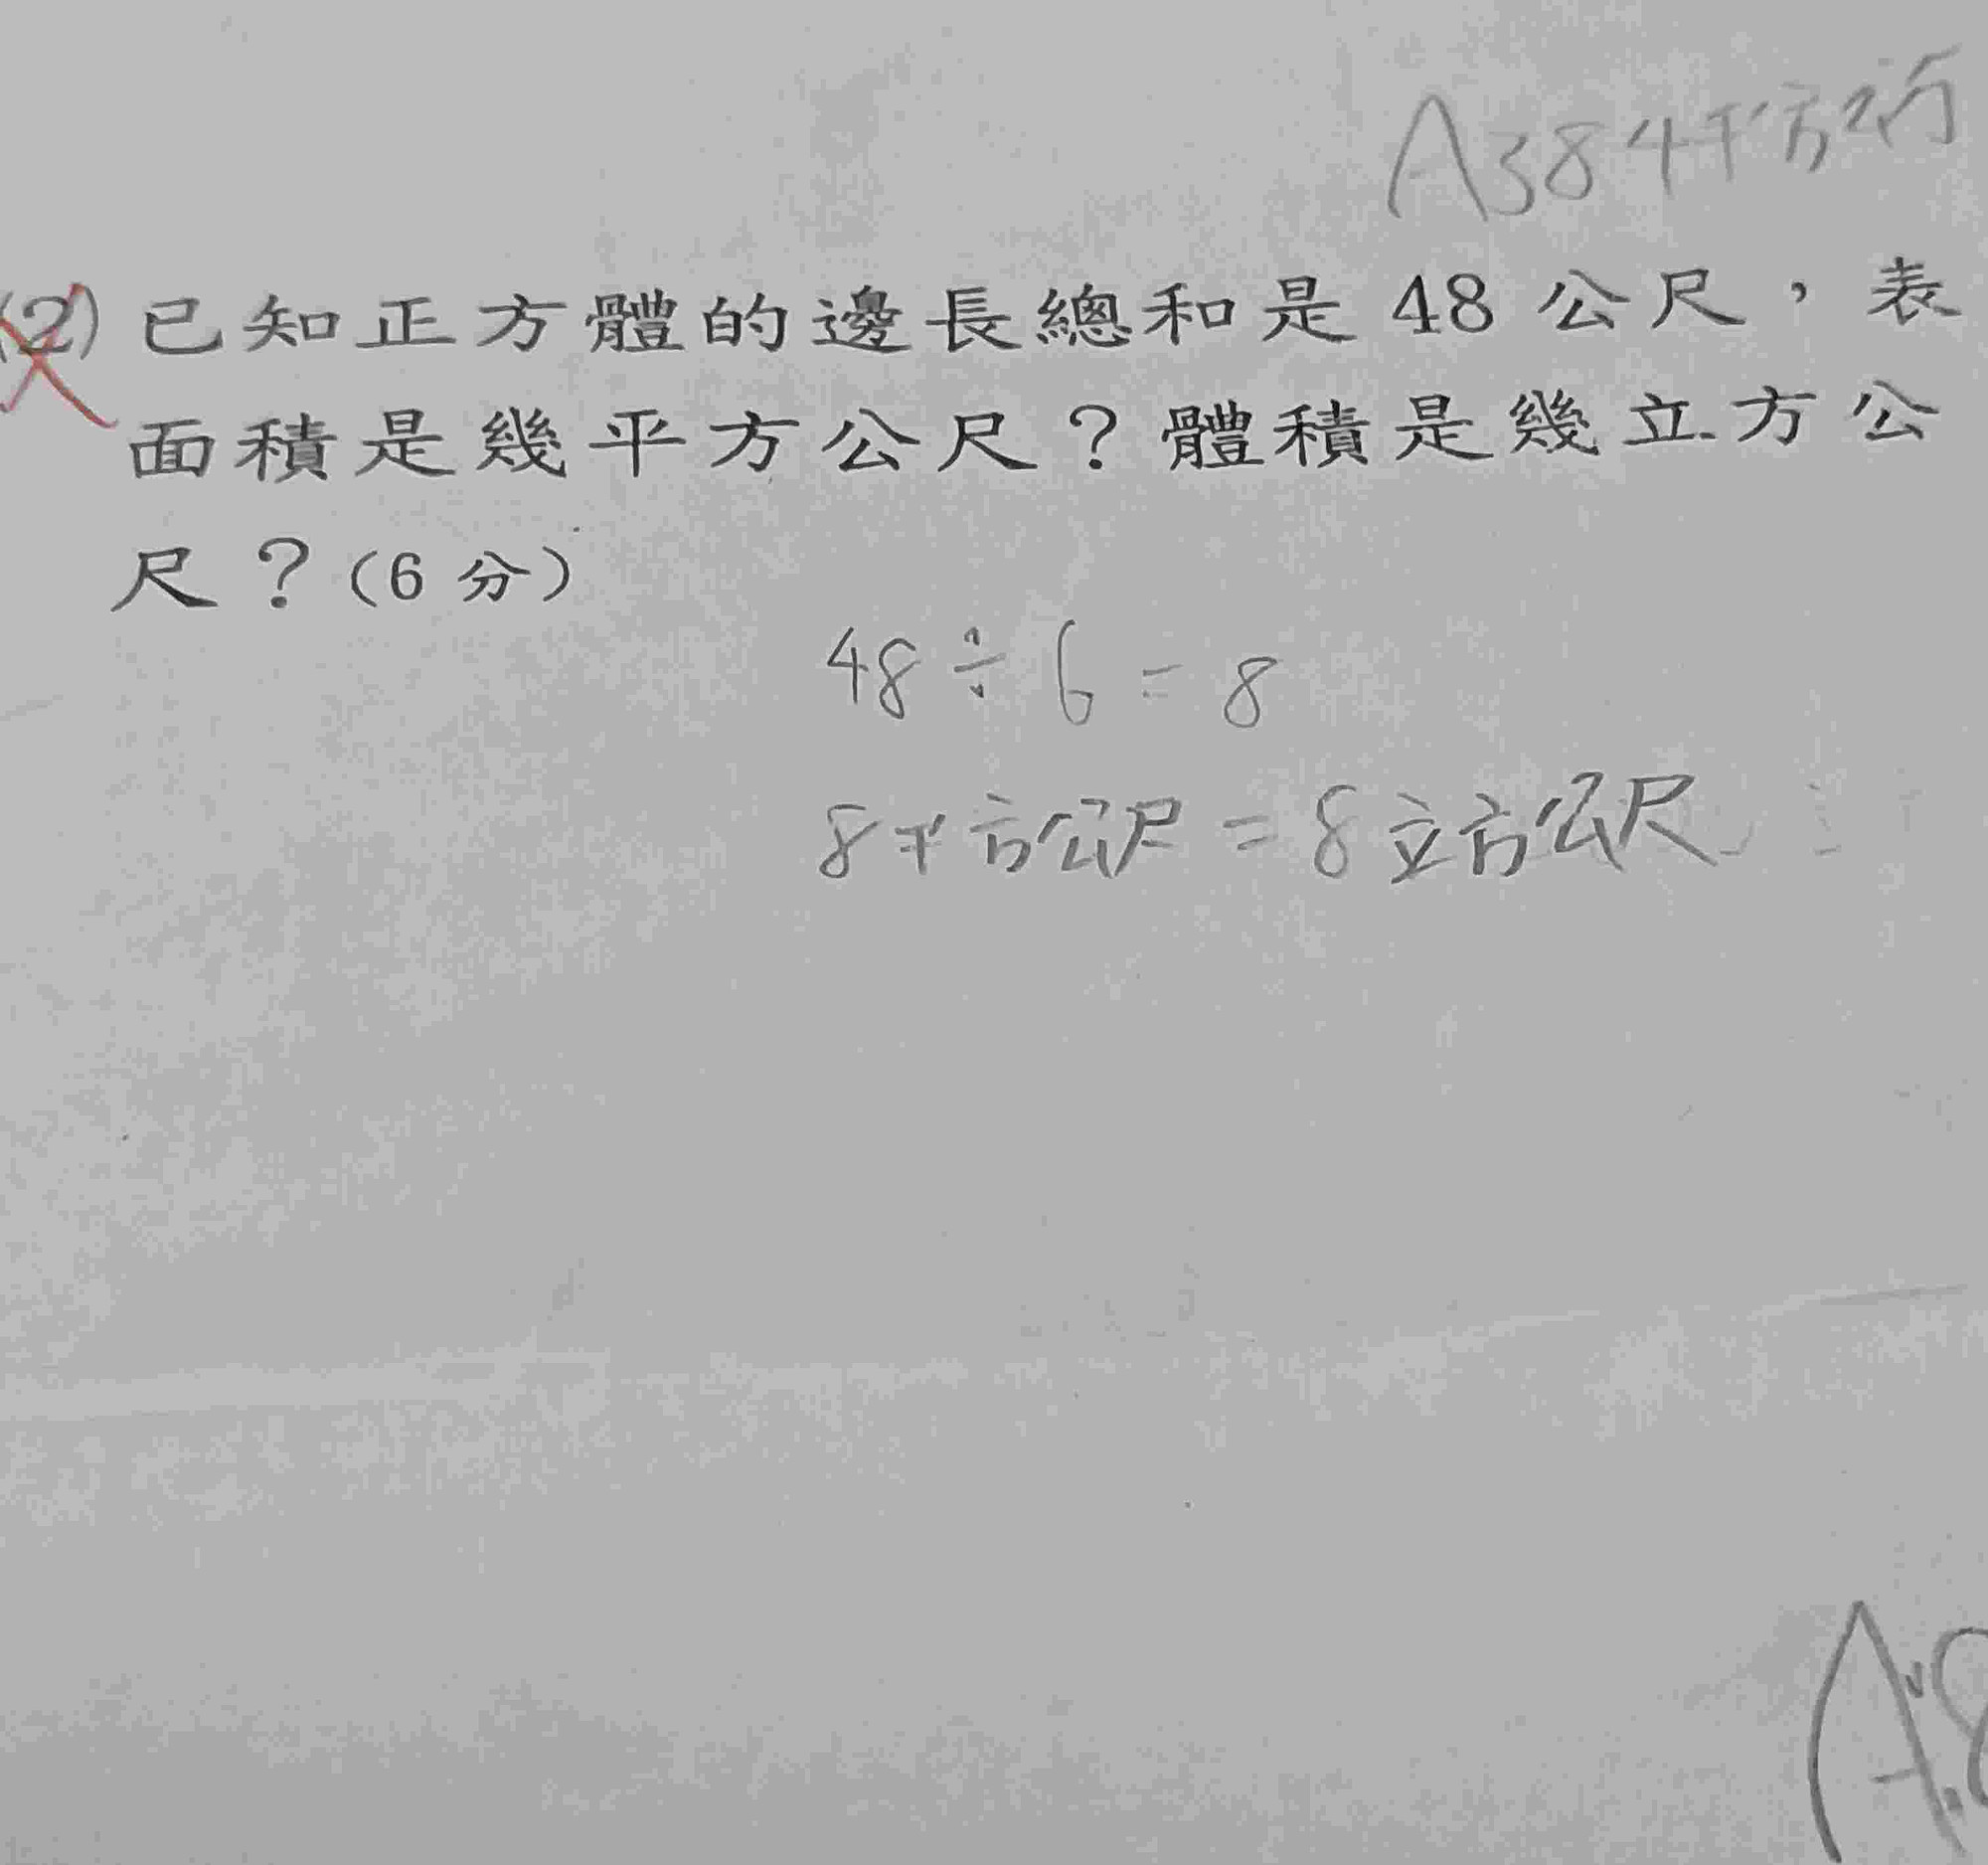 A384平方
(2) 已知正方體的邊長總和是 48 公尺，表
面積是幾平方公尺？體積是幾立方公
尺？(6 分)
48÷6=8
8平方公尺=8立方公尺
A:8